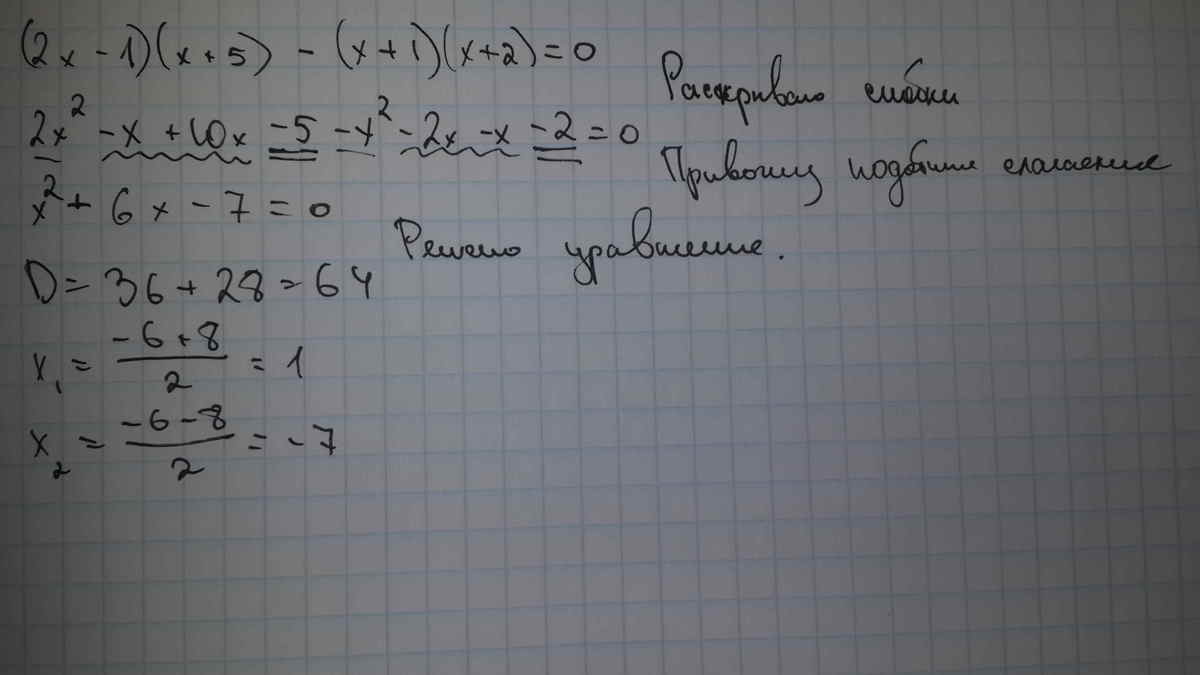 (2x - 1)(x + 5) - (x + 1)(x + 2) = 0
Раскриваю скобки
2x² - x + 10x - 5 - x² - 2x - x - 2 = 0
Привожу подобные слагаемие
x² + 6x - 7 = 0
Решаю уравнение.
D = 36 + 28 = 64
x₁ = (-6 + 8)/2 = 1
x₂ = (-6 - 8)/2 = -7